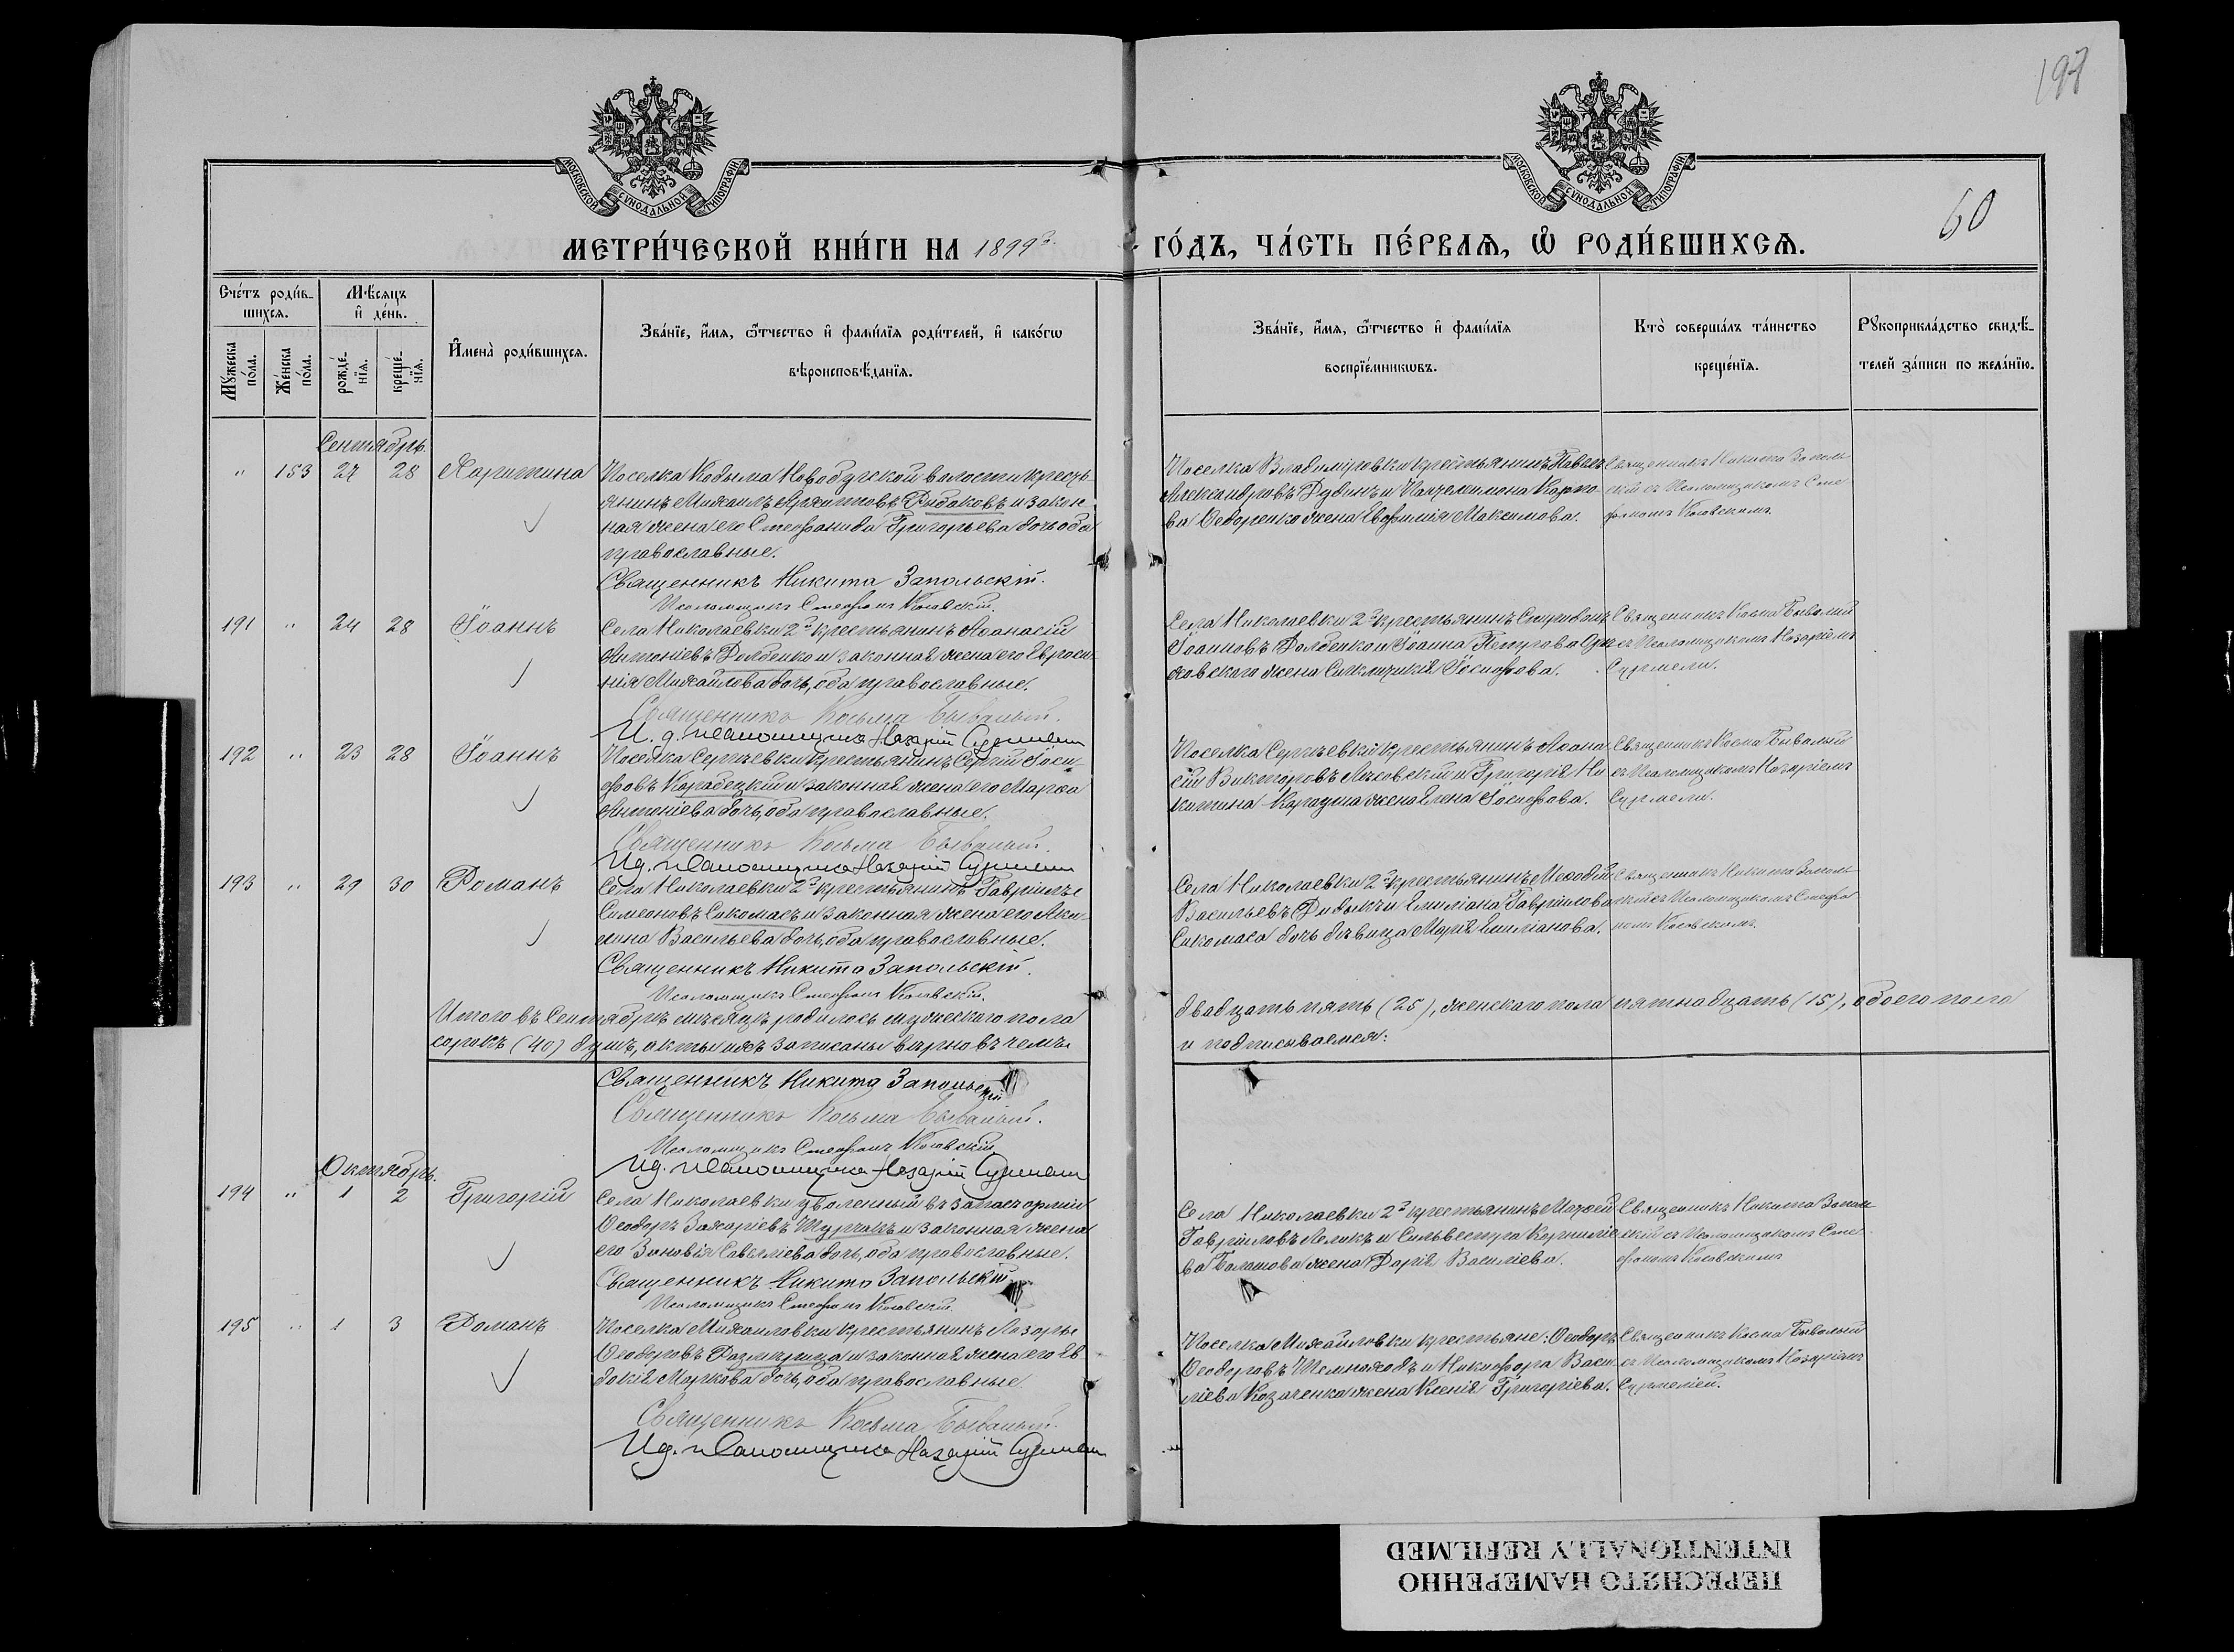 197
МОСКОВСКОЙ СУНОДАЛЬНОЙ ТИПОГРАФІИ
МОСКОВСКОЙ СУНОДАЛЬНОЙ ТИПОГРАФІИ
60
МЕТРИ́ЧЕСКОЙ КНИ́ГИ НА 1899 й
ГО́ДЪ, ЧА́СТЬ ПЕ́РВАѦ, Ѡ РОДИ́ВШИХСѦ.
Счéтъ роди́вшихсѧ.
Мѣ́сяцъ и҆ дéнь.
Мꙋ́жеска пóла.
Жéнска пóла.
рождéнїѧ.
крещéнїѧ.
И҆менà роди́вшихсѧ.
Звáнїе, и҆́мѧ, ѻ҆́тчество и҆ фами́лїѧ роди́телей, и҆ какóгѡ
вѣроисповѣ́данїѧ.
Звáнїе, и҆́мѧ, ѻ҆́тчество и҆ фами́лїѧ
воспрїéмникѡвъ.
Ктò совершáлъ тáинство
крещéнїѧ.
Рꙋкоприклáдство свидѣ́телей зáписи по желáнїю.
Сентябрь.
" 153 27 28 Харитина
Поселка Кодыма Новобугской волости крестьянинъ Михаилъ Рыбаковъ и законная жена его Стефанида Григорьева дочь оба
православные.
Священникъ Никита Запольскій.
Псаломщикъ Стефанъ
Поселка Владиміровки крестьянинъ Павелъ
Александровъ Дубинъ и Пантелеимона Карпова Федоренко жена Евфимія Максимова.
Священникъ Никита Запольскій съ Псаломщикомъ Стефаномъ
191 " 24 28 Іоаннъ
Села Николаевки 2й крестьянинъ Аѳанасій
Антоніевъ Долбенко и законная жена его Евгенія Михайлова дочь, оба православные.
Священникъ Косьма Бывалый.
И. д. псаломщика Назарій Сурмели
Села Николаевки 2й крестьянинъ Спиридонъ
Іоанновъ Долбенко и Іоанна Петрова
жена Синклитикія Іосифова.
Священникъ Косма Бывалый
съ Псаломщикомъ Назаріемъ
Сурмели.
192 " 23 28 Іоаннъ
Поселка Сергѣевки крестьянинъ Сергій Іосифовъ Карабецкій и законная жена его Марѳа
Антоніева дочь, оба православные.
Священникъ Косьма Бывалый.
И.д. псаломщика Назарій Сурмели
Поселка Сергѣевки крестьянинъ Аѳанасій Викторовъ Ляховскій и Григорія Никитина жена Елена Іосифова.
Священникъ Косма Бывалый
съ Псаломщикомъ Назаріемъ
Сурмели.
193 " 29 30 Романъ
Села Николаевки 2й крестьянинъ Гавріилъ
Симеоновъ Сикомасъ и законная жена его Акилина Васильева дочь, оба православные.
Священникъ Никита Запольскій.
Псаломщикъ Стефанъ
Села Николаевки 2й крестьянинъ Меѳодій
Васильевъ Дидыкъ и Емиліана Гавріилова
Сикомаса дочь дѣвица Марія Емиліанова.
Священникъ Никита Запольскій съ Псаломщикомъ Стефаномъ
Итого въ Сентябрѣ мѣсяцѣ родилось мужескаго пола
двадцать пять (25), женскаго пола пятнадцать (15), обоего пола
сорокъ (40) душъ, акты и всѣ записаны вѣрно въ чемъ
и подписываемся:
Священникъ Никита Запольскій
Священникъ Косьма Бывалый.
Псаломщикъ Стефанъ
И.д. псаломщика Назарій Сурмели
Октябрь.
194 " 1 2 Григорій
Села Николаевки уволенный въ запасъ арміи
Ѳеодоръ Захаріевъ Турчакъ и законная жена
его Зиновія Савеліева дочь, оба православные.
Священникъ Никита Запольскій
Псаломщикъ Стефанъ
Села Николаевки 2й крестьянинъ Моѵсей
Гавріиловъ и Сильвестра Корниліева Балашова жена Дарія Василіева.
Священникъ Никита Запольскій съ Псаломщикомъ Стефаномъ
195 " 1 3 Романъ
Поселка Михаиловки крестьянинъ Лазарь
Ѳеодоровъ и законная жена его Евдокія Маркова дочь, оба православные.
Священникъ Косьма Бывалый.
И.д. псаломщика Назарій Сурмели
Поселка Михайловки крестьяне: Ѳеодоръ
Ѳеодоровъ и Никифора Василіева Козаченка жена Ксенія Григоріева.
Священникъ Косма Бывалый
съ Псаломщикомъ Назаріемъ
Сурмеліей.
ПЕРЕСНЯТО НАМЕРЕННО
INTENTIONALLY REFILMED